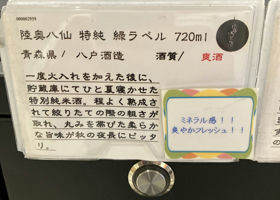 000002939
陸奥八仙 特純 緑ラベル 720ml
青森県/ 八戸酒造 酒質/ 爽酒
一度火入れを加えた後に、
貯蔵庫にてひと夏寝かせた
特別純米酒。程よく熟成さ
れて搾りたての際の粗さが
取れ、丸みを帯びた柔らか
な旨味が秋の夜長にピッタ
リ。
ミネラル感!!
爽やかフレッシュ!!